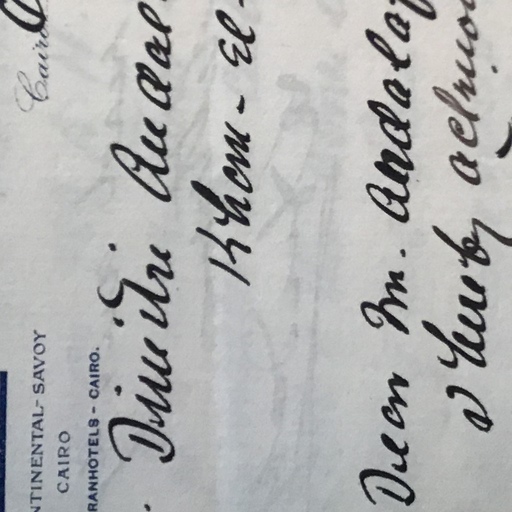 NTINENTAL-SAVOY
CAIRO
RANHOTELS - CAIRO.
Cairo
Dimitri Andal
Kham - El -
Dear Mr. Andalaf
I hereby acknow